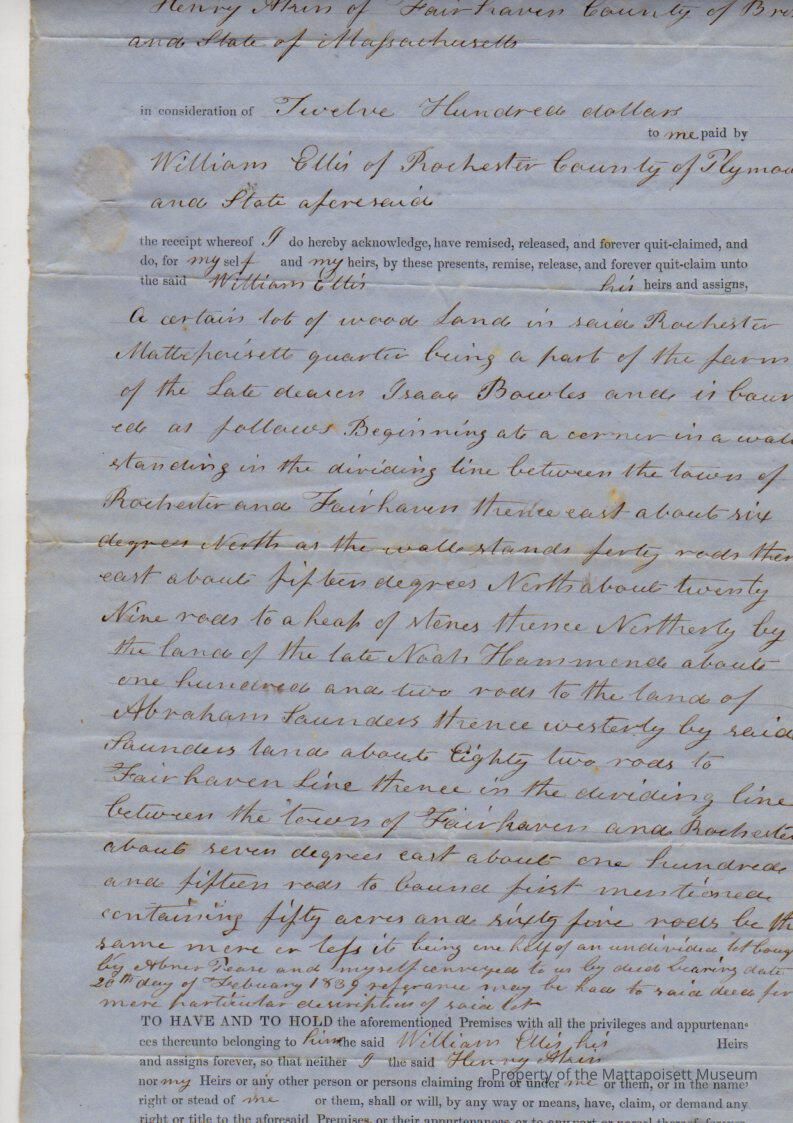 Henry Akin of Fairhaven County of Bris
and State of Massachusetts
in consideration of Twelve Hundred dollars
to me paid by
William Ellis of Rochester County of Plymou
and State aforesaid
the receipt whereof I do hereby acknowledge, have remised, released, and forever quit-claimed, and
do, for my self and my heirs, by these presents, remise, release, and forever quit-claim unto
the said William Ellis his heirs and assigns,
A certain lot of wood Land in said Rochester
Mattepoisett quarter being a part of the farm
of the Late deacen Isaac Bowles and is boun
ed as follows Beginning at a corner in a wall
standing in the dividing line between the towns of
Rochester and Fairhaven thence east about six
degrees North as the wall stands forty rods then
east about fifteen degrees North about twenty
Nine rods to a heap of stones thence Northerly by
the land of the late Noah Hammond about
one hundred and two rods to the land of
Abraham Saunders thence westerly by said
Saunders land about Eighty two rods to
Fairhaven Line thence in the dividing line
between the towns of Fairhaven and Rochester
about seven degrees east about one hundred
and fifteen rods to bound first mentioned
containing fifty acres and sixty five rods be th
same more or less it being one half of an undivided lot boug
by Abner Pease and myself conveyed to us by deed bearing date
20th day of Febuary 1839 referance may be had to said deed for
more particular description of said lot
TO HAVE AND TO HOLD the aforementioned Premises with all the privileges and appurtenan-
ces thereunto belonging to him the said William Ellis his Heirs
and assigns forever, so that neither I the said Henry Akin
nor my Heirs or any other person or persons claiming from or under me or them, or in the name,
right or stead of me or them, shall or will, by any way or means, have, claim, or demand any
right or title to the aforesaid Premises, or their appurtenances, or to any part or parcel thereof, forever
Property of the Mattapoisett Museum